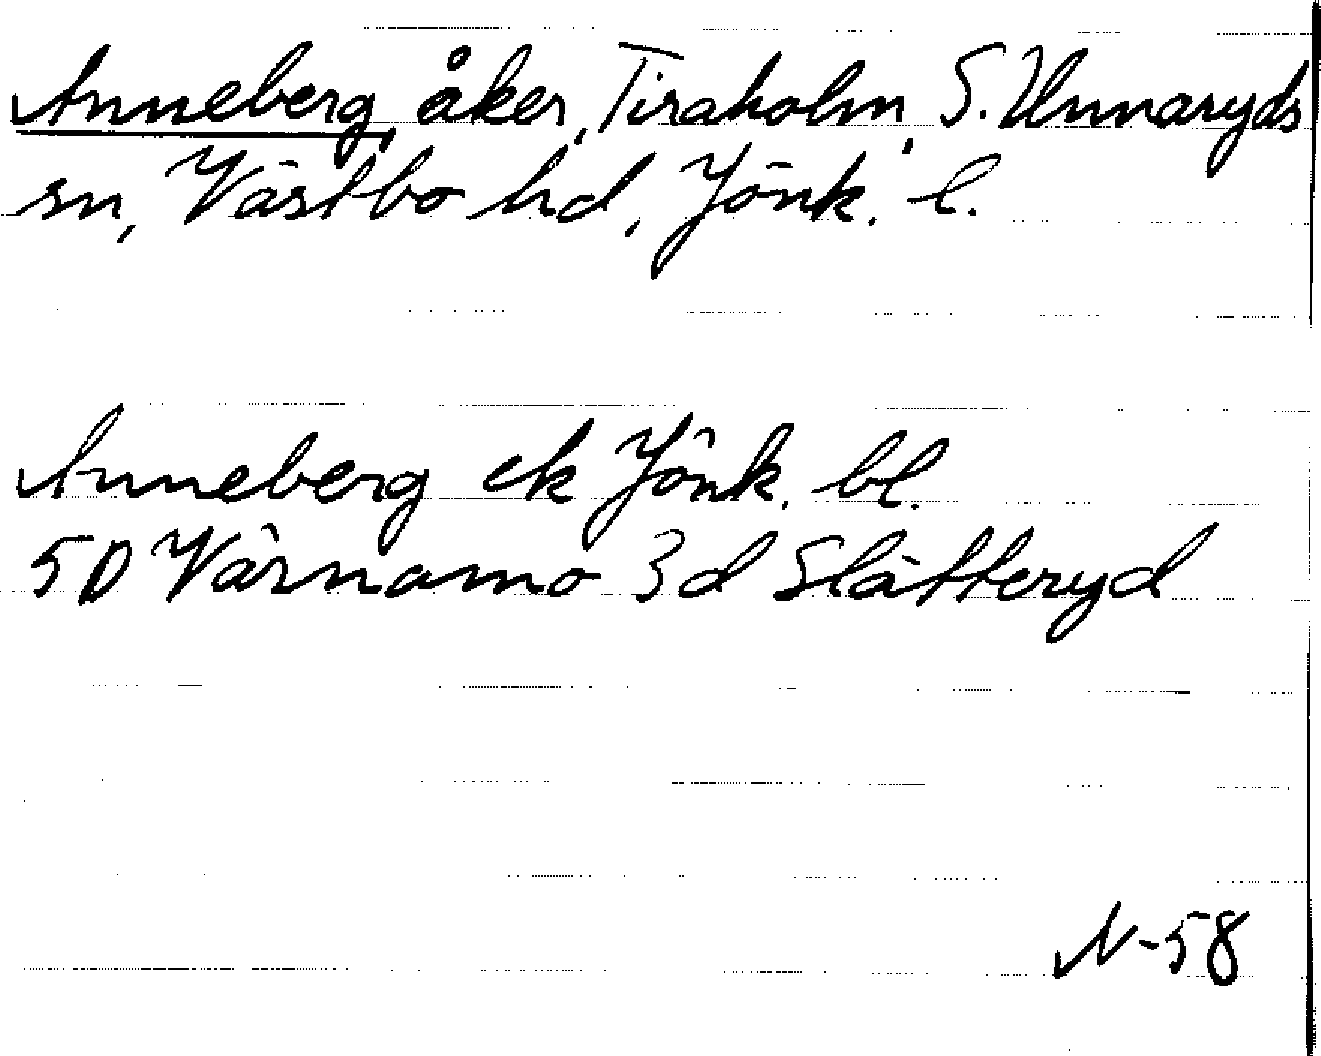 Anneberg, åker, Tiraholm, S. Unnaryds
sn, Västbo hd, Jönk. l.
Anneberg ek Jönk. bl.
5D Värnamo 3d Slätteryd
N-58